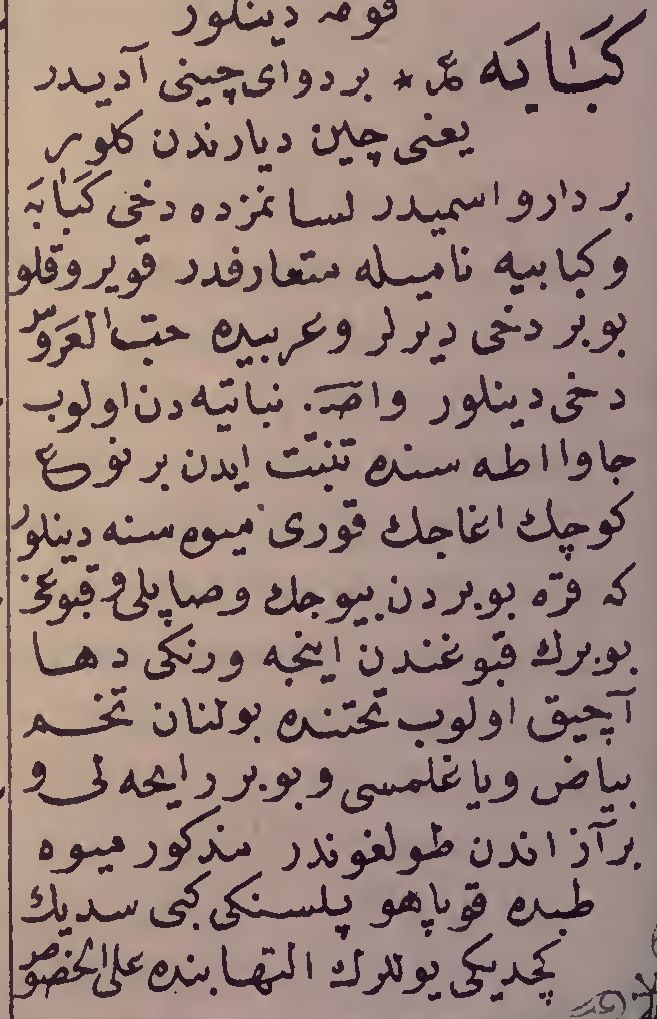 قومه دينلور
كَبَابَه عر * بر دواى چينى آديدر
يعنى چين ديارندن كلور
بر دارو اسميدر لسانمزده دخى كَبَابَه
وكبابيه ناميله متعارفدر قويروقلو
بوبر دخى ديرلر وعربيده حبّ العَروس
دخى دينلور نباتيه دن اولوب
جاوا اطه سنده تنبّت ايدن بر نوع
كوچك اغاجك قورى ميوه سنه دينلور
كه قره بوبردن بيوجك وصاپلى و قبوغى
بوبرك قبوغندن اينجه ورنكى دها
آچيق اولوب تحتنده بولنان تخم
بياض وياغلمسى وبوبر رايحه لى و
بر آز اندن طولغوندر مذكور ميوه
طبده قوپاهو پلسنكى كبى سديك
كچديكى يوللرك التهابنده على الخصوص